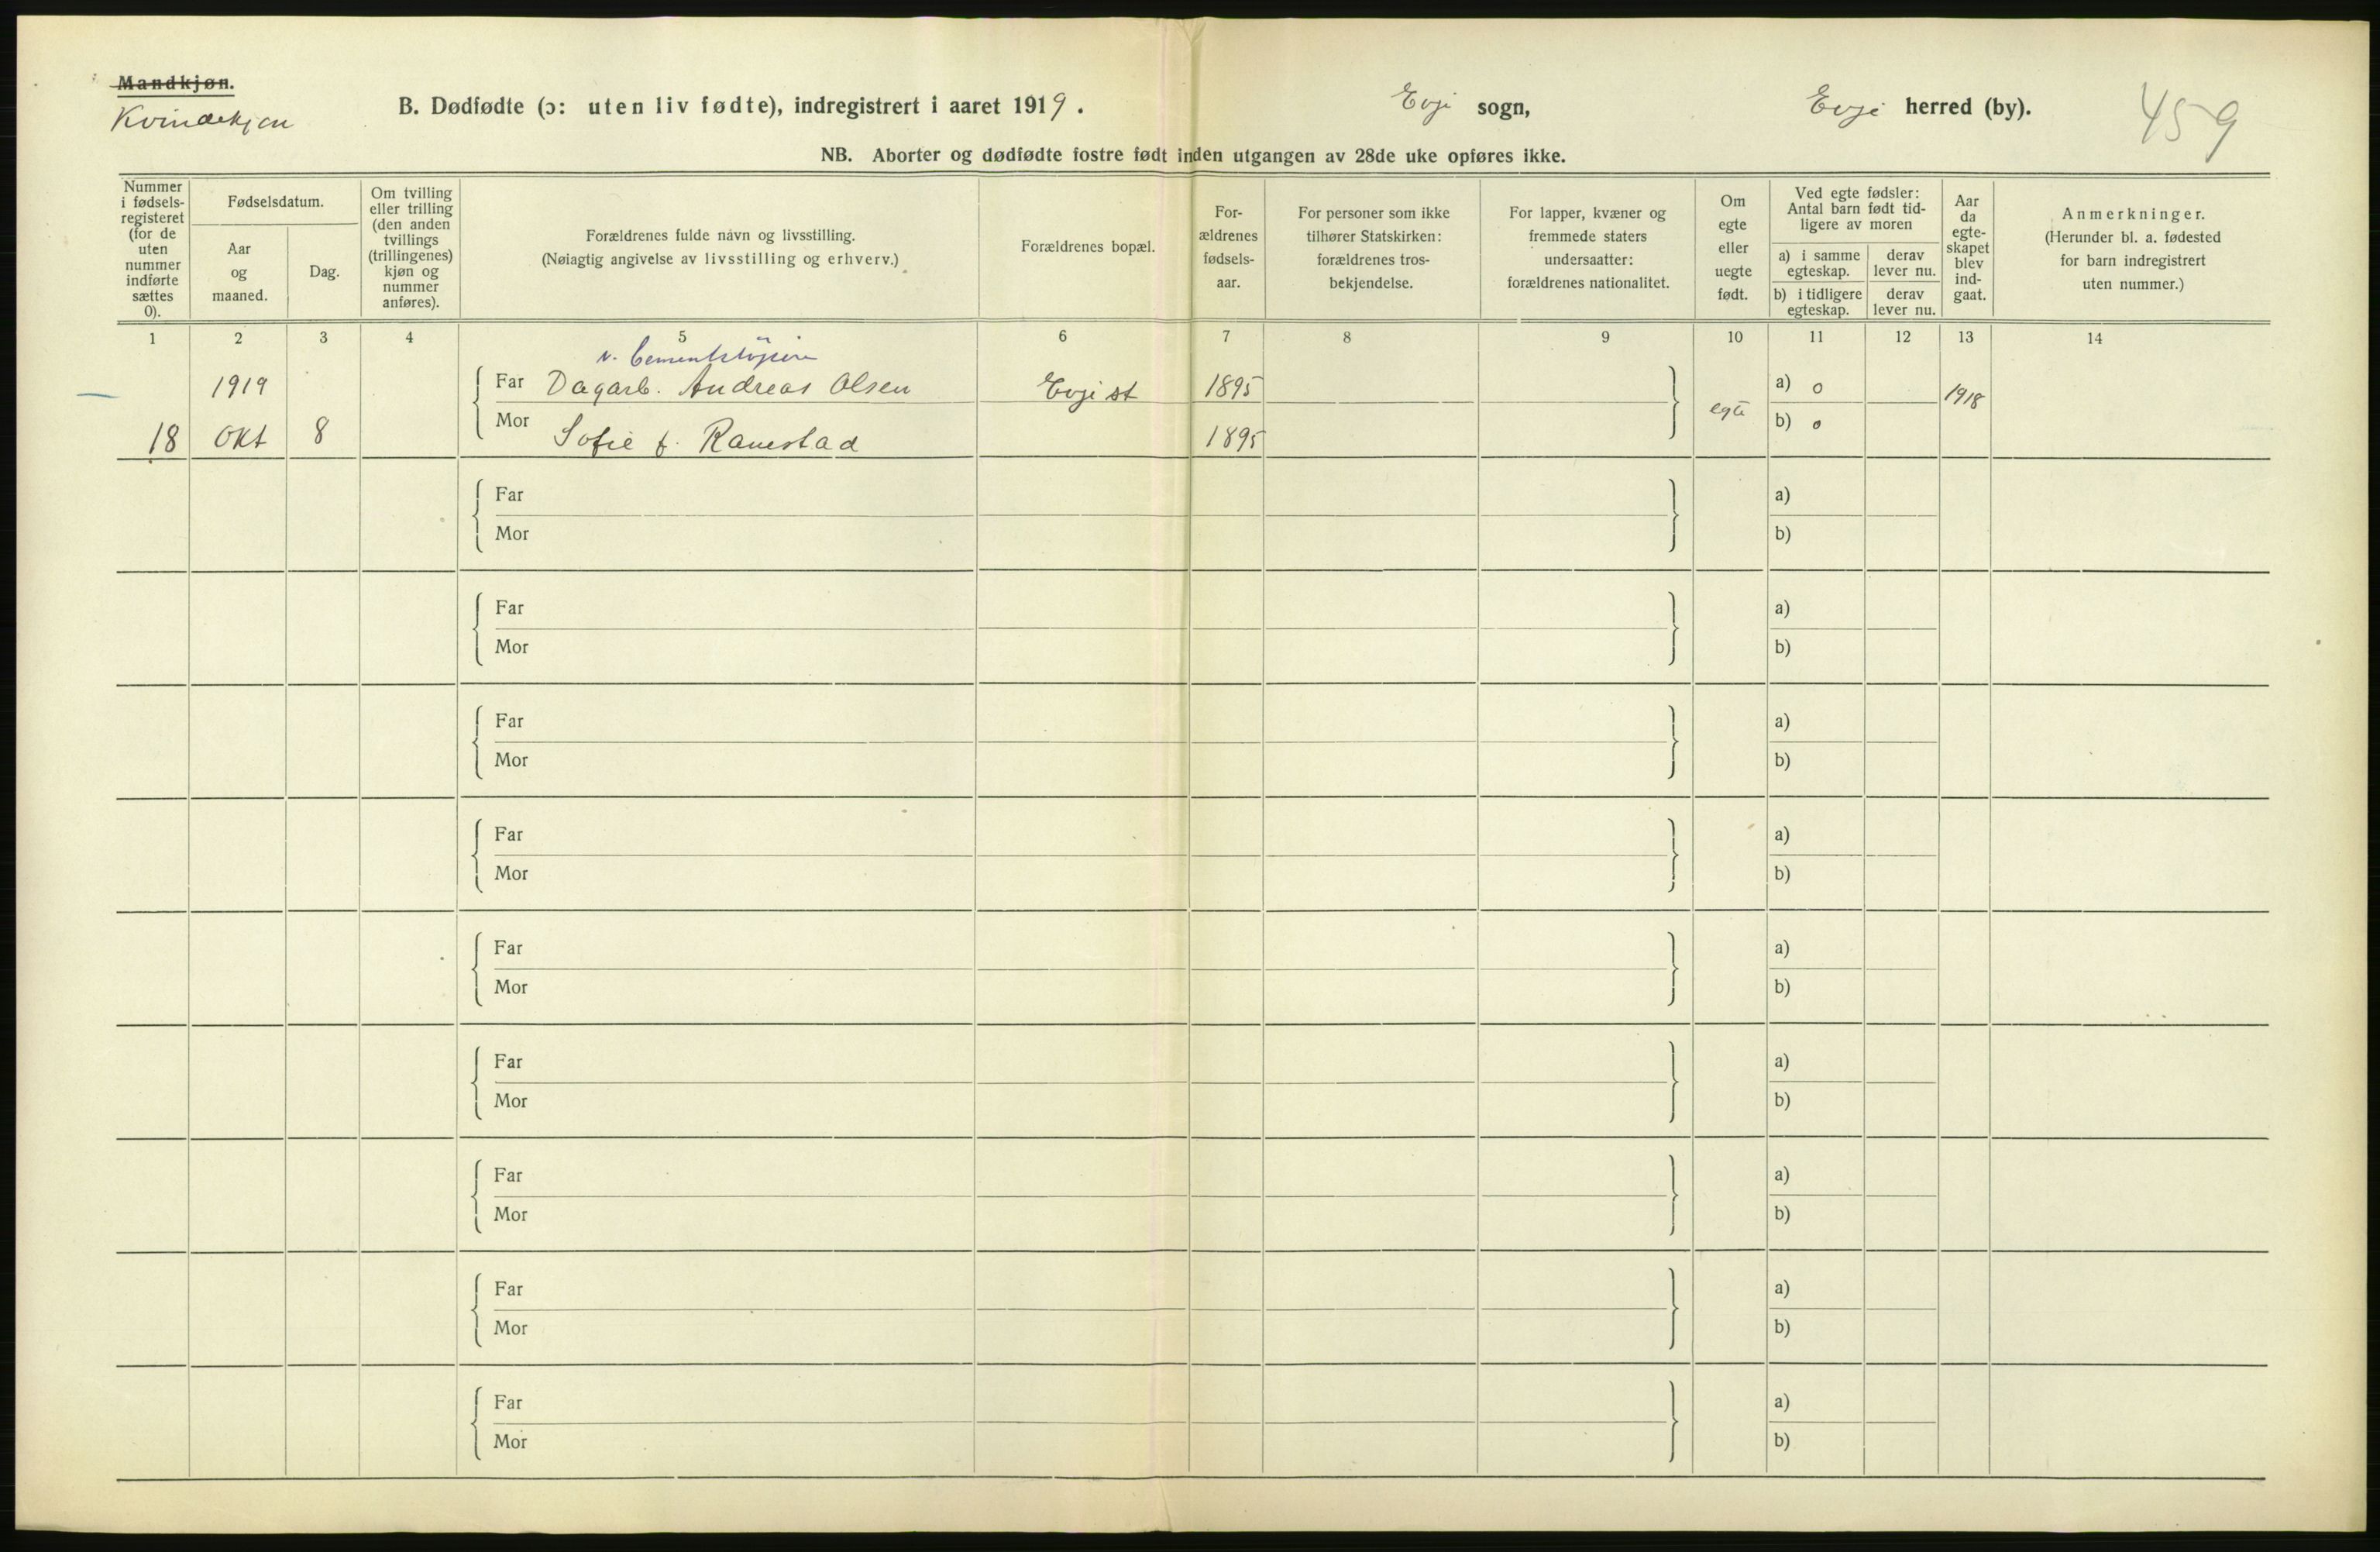 Mandkjøn.
Kvindekjøn
B. Dødfødte (ɔ: uten liv fødte), indregistrert i aaret 1919.
Evje sogn,
Evje herred (by).
459
NB. Aborter og dødfødte fostre født inden utgangen av 28de uke opføres ikke.
Nummer
i fødsels-
registeret
(for de
uten
nummer
indførte
sættes
0).
Fødselsdatum.
Aar
og
maaned.
Dag.
Om tvilling
eller trilling
(den anden
tvillings
(trillingenes)
kjøn og
nummer
anføres).
Forældrenes fulde navn og livsstilling.
(Nøiagtig angivelse av livsstilling og erhverv.)
Forældrenes bopæl.
For-
ældrenes
fødsels-
aar.
For personer som ikke
tilhører Statskirken:
forældrenes tros-
bekjendelse.
For lapper, kvæner og
fremmede staters
undersaatter:
forældrenes nationalitet.
Om
egte
eller
uegte
født.
Ved egte fødsler:
Antal barn født tid-
ligere av moren
a) i samme
egteskap.
derav
lever nu.
b) i tidligere
egteskap.
derav
lever nu.
Aar
da
egte-
skapet
blev
ind-
gaat.
Anmerkninger.
(Herunder bl. a. fødested
for barn indregistrert
uten nummer.)
1 2 3 4 5 6 7 8 9 10 11 12 13 14
v. Cementstøperi
1919 Far Dagarb. Andreas Olsen Evje st 1895 egte a) 0 1918
18 Okt 8 Mor Sofie f. Ranestad 1895 b) 0
Far a)
Mor b)
Far a)
Mor b)
Far a)
Mor b)
Far a)
Mor b)
Far a)
Mor b)
Far a)
Mor b)
Far a)
Mor b)
Far a)
Mor b)
Far a)
Mor b)